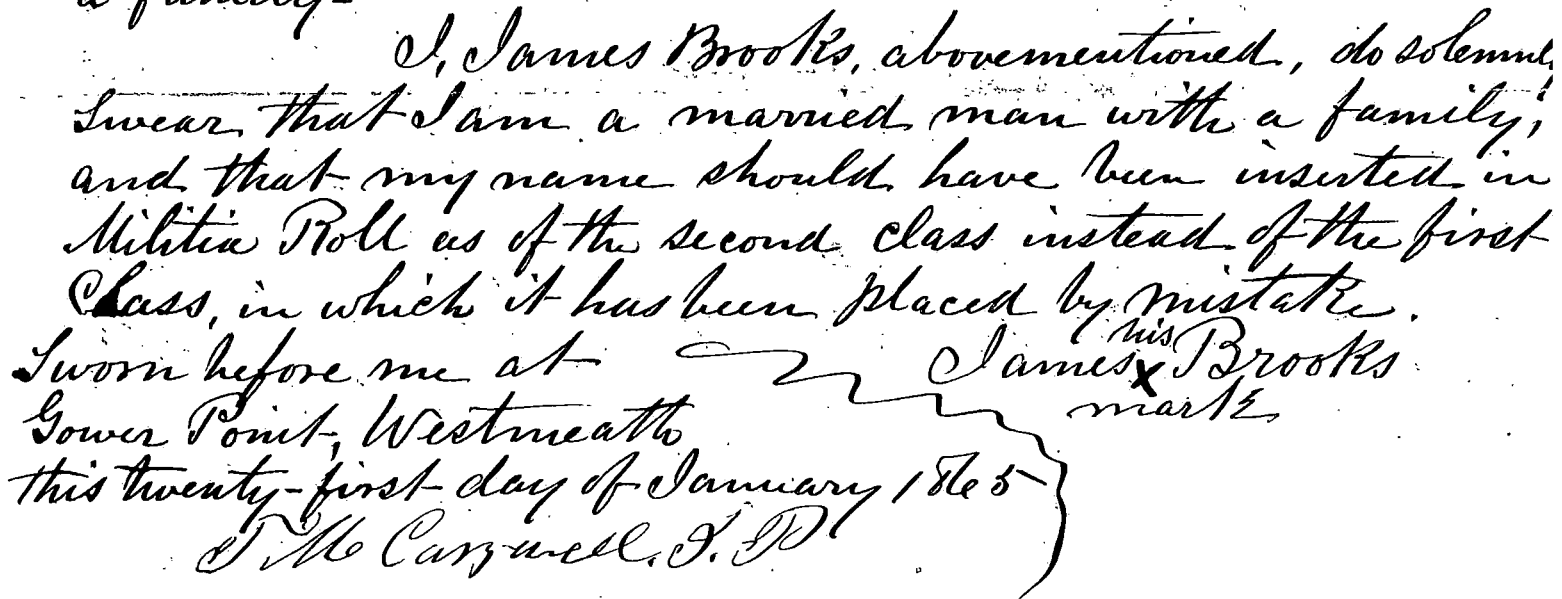 a family-
I, James Brooks, abovementioned, do solemnly
swear that I am a married man with a family;
and that my name should have been inserted in
Militia Roll as of the second class instead of the first
Class, in which it has been placed by mistake.
Sworn before me at James his x mark Brooks
Gower Point, Westmeath
this twenty-first day of January 1865
J. P.